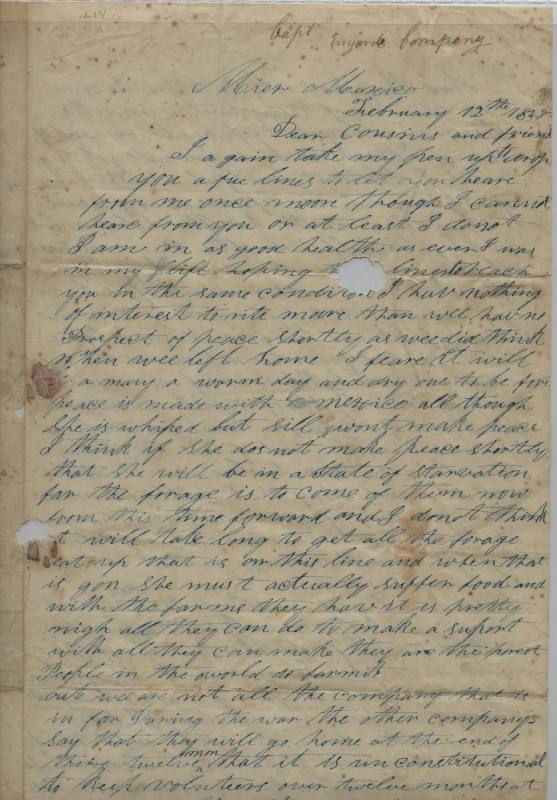 LIV
Capt Company
Mier Mexico
February 12th 1848
Dear Cousins and friend
I again take my pen up to
you a fue lines to let you heare
from me once moore though I cannot
heare from you or at least I donot
I am in as good health as ever I was
in my life hoping lines to reach
you in the same condition I hav nothing
of interest to rite moore than wee hav no
Prospect of peace shortly as wee did think
when wee left home I feare it will
a many a worm day and dry one to be for
peace is made with mexico all though
she is whiped but sill wont make peace
I think if she dos not make peace shortly
that she will be in a State of starvation
for the forage is to come of them now
from this time forward and I donot think
it will take long to get all the forage
eat up that is on this line and when that
is gon she must actually suffer food and
with the farms they hav it is pretty
nigh all they can do to make a suport
with all they can make they are the porest
People in the world to farmit
but wee are not all the company that is
in for during the war the other companys
say that they will go home at the end of
their twelve month that it is unconstitutional
to keep volunteers over twelve months at